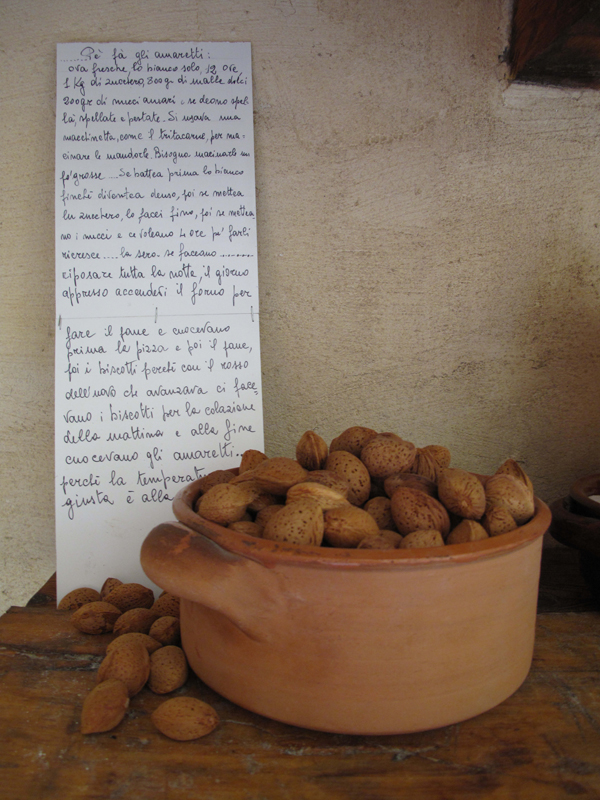 Pè fà gli amaretti:
ova fresche, lo bianco solo, 12 ove
1 Kg di zucchero, 300gr di malle dolci
200gr di nucci amari e se deono spel
là, spellate e pestate. Si usava una
macchinetta, come 'l tritacarne, per ma-
cinare le mandorle. Bisogna macinarle un
po' grosse... Se battea prima lo bianco
finchè diventea denso, poi se mettea
lu zucchero, lo facei fino, poi se mettea
no i nucci e ce voleano 4 ore pe' farli
ricresce.... la sera se faceano ........
riposare tutta la notte, il giorno
appresso accenderi il forno per
fare il pane e cuocevano
prima la pizza e poi il pane,
poi i biscotti perchè con il rosso
dell'uovo che avanzava ci face-
vano i biscotti per la colazione
della mattina e alla fine
cuocevano gli amaretti...
perchè la temperatu
giusta è alla